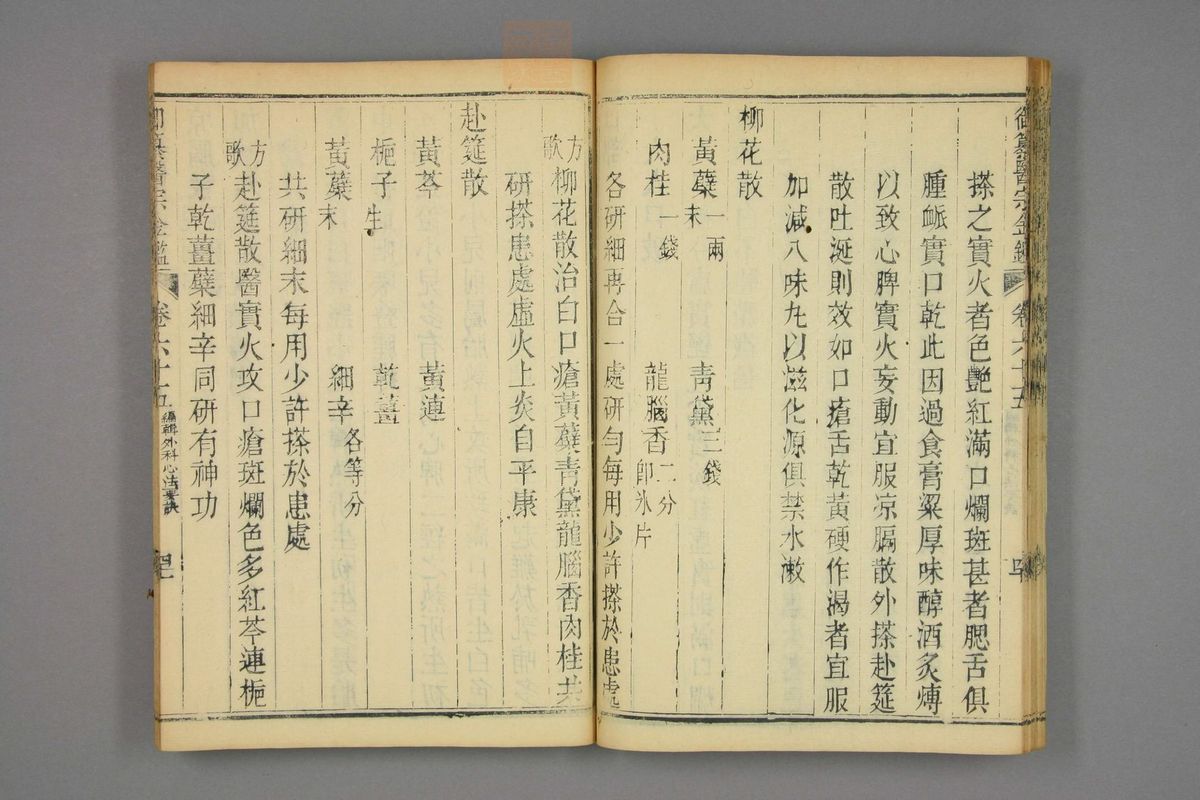 御纂醫宗金鑑 卷六十五
搽之實火者色艷紅滿口爛斑甚者腮舌俱
腫衇實口乾此因過食膏粱厚味醇酒炙煿
以致心脾實火妄動宜服凉膈散外搽赴筵
散吐涎則效如口瘡舌乾黃硬作渴者宜服
加減八味九以滋化源俱禁水漱
柳花散
黃蘗末一兩 靑黛三錢
肉桂一錢 龍腦香二分卽氷片
各硏細再合一處硏勻每用少許搽於患處
方歌 柳花散治白口瘡黃蘗靑黛龍腦香肉桂共
硏搽患處虛火上炎自平康
赴筵散
黃芩 黃連
梔子生 乾薑
黃蘗末 細辛各等分
共硏細末每用少許搽於患處
方歌 赴筵散醫實火攻口瘡斑爛色多紅芩連梔
子乾薑蘗細辛同硏有神功
御纂醫宗金鑑 卷六十五 編輯外科心法要訣